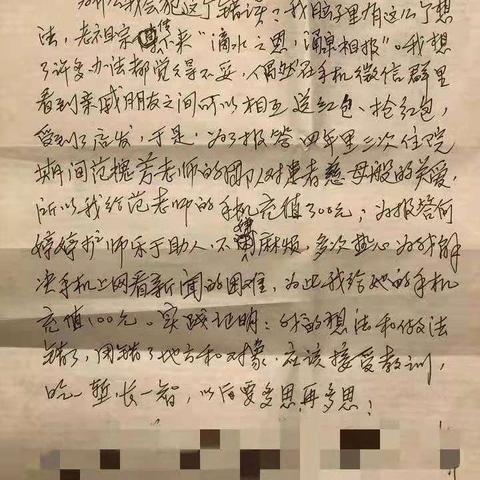 为什么我会犯这个错误？我脑子里有这么个想
法，老祖宗传下来“滴水之恩，涌泉相报”。我想
了许多办法都觉得不妥，偶然在手机微信群里
看到亲戚朋友之间可以相互送红包、抢红包，
受到了启发，于是，为了报答四年里三次住院
期间范槐芳老师的团队对患者慈母般的关爱，
所以我给范老师的手机充值200元；为报答何
婷婷护师乐于助人，不麻烦，多次热心为我解
决手机上网看新闻的困难，为此我给她的手机
充值100元。实践证明：我的想法和做法
错了，用错了地方和对象，应该接受教训，
吃一堑长一智，以后要多思再多思！